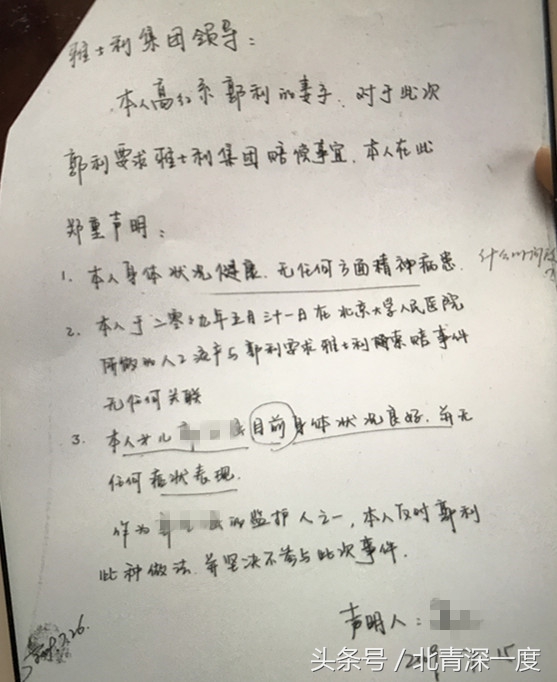 雅士利集团领导：
本人高红系郭利的妻子，对于此次
郭利要求雅士利集团赔偿事宜，本人在此
郑重声明：
1. 本人身体状况健康，无任何方面精神病患。
什么时间
2. 本人于二零零九年五月三十一日在北京大学人民医院
所做的人工流产与郭利要求雅士利索赔事件
无任何关联
3. 本人女儿 目前身体状况良好，并无
任何症状表现。
作为 的监护人之一，本人反对郭利
此种做法，并坚决不参与此次事件。
声明人：
7.26.
15
头条号／北青深一度